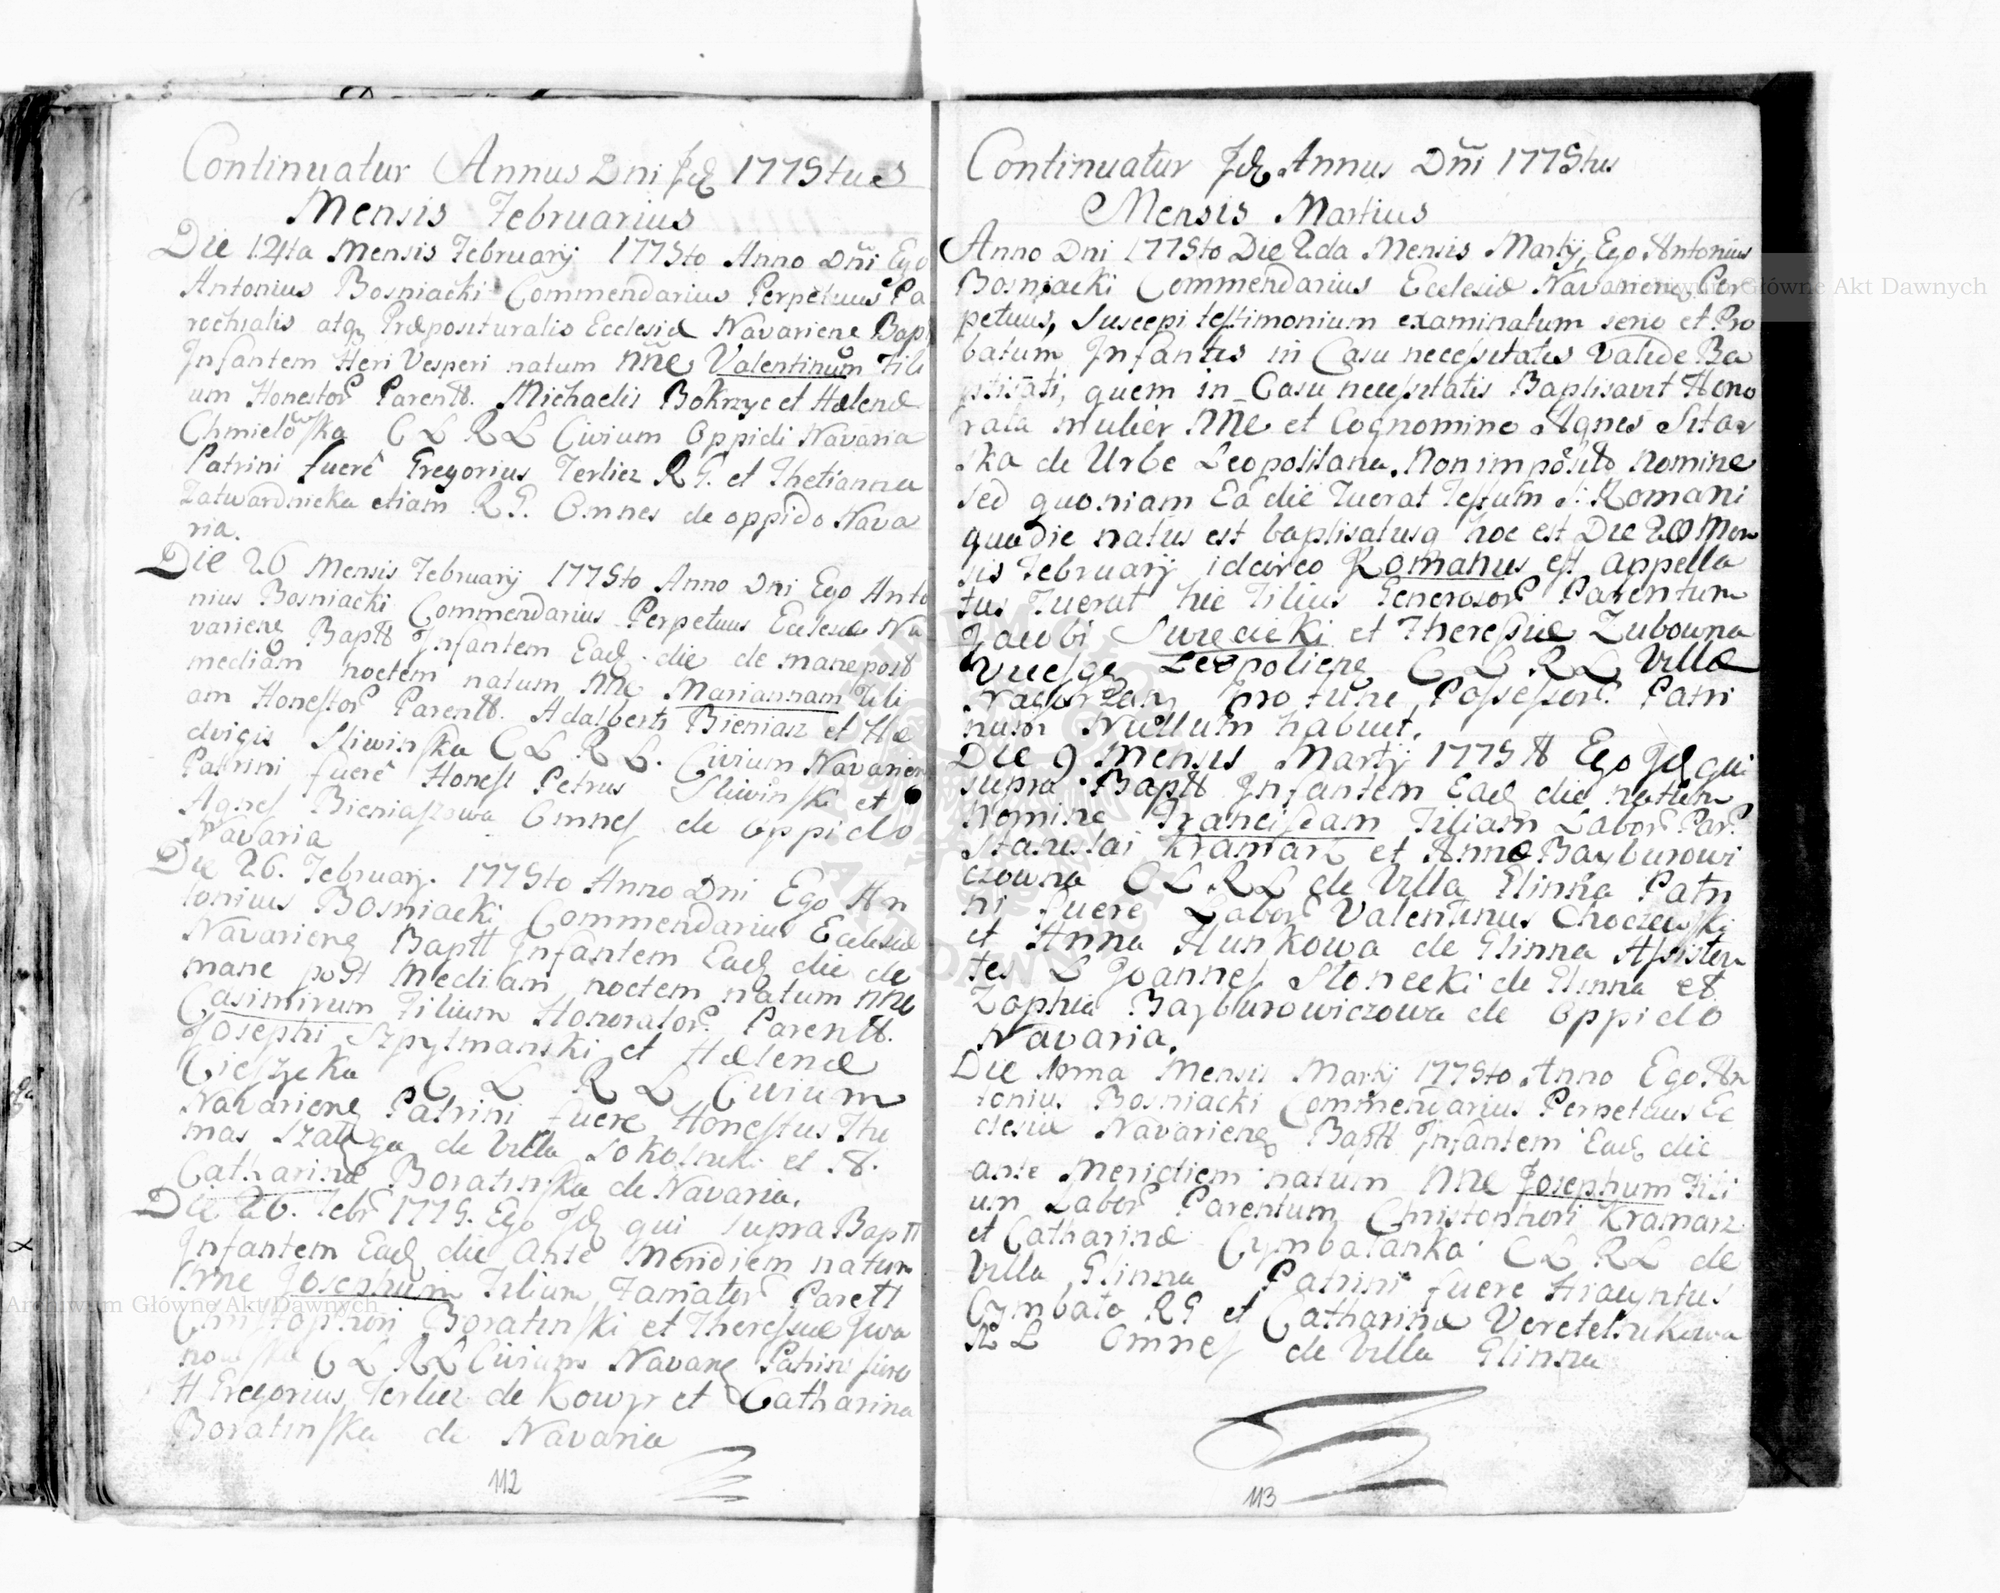 Continuatur Annus Dni Jdē 1775tus
Mensis Februarius
Die 14ta Mensis Februarij 1775to Anno Dñi Ego
Antonius Bosniacki Commendarius Perpetuus Pa
rochialis atq Præpositturalis Ecclesiæ Navarienē Bapt
Infantem Heri Vesperi natum Nñe Valentinum Fili
um Honestor Parentt. Michaelis Bokrzyc et Hælenæ
Chmielowska C L R L Civium Oppidi Navaria
Patrini fuerē Gregorius Terlicz R G. et Thetianna
Zatwardnicka etiam R G. Omnes de oppido Nava
ria.
Die 20 Mensis Februarij 1775to Anno Dni Ego Anto
nius Bosniacki Commendarius Perpetuus Ecclesiæ Na
varienę Baptt Infantem Eadę die de mane post
mediam noctem natum Nñe Mariannam Fili
am Honestor Parentt. Adalberti Bieniasz et He
dvigis Sliwinska C L R L. Civium Navarien
Patrini fuerē Honest Petrus Sliwinski et
Agnes Bieniaszowa Omnes de Oppido
Navaria
Die 26. Februarij. 1775to Anno Dni Ego An
tonius Bosniacki Commendarius Ecclesiæ
Navarienę Baptt Infantem Eadę die de
mane post Mediam noctem natum Nñe
Casimirum Filium Honorator Parentt.
Josephi Szpytmanski et Hælenæ
Cieszycka C L R L Civium
Navarienę Patrini fuere Honestus Tho
mas de Villa Sokolniki et H.
Catharina Boratinska de Navaria.
Die 26. Febr 1775. Ego Jdę qui supra Baptt
Infantem Eadę die Ante Meridiem natum
Nñe Josephum Filium Famator Parett
Christophori Boratinski et Theressiæ Iwa
nowska C L R L Civium Navarię Patrini fuere
H Gregorius Terlicz de Kowyr et Catharina
Boratinska de Navaria
112
Continuatur Jdę Annus Dñi 1775tus
Mensis Martius
Anno Dni 1775to Die 2da Mensis Martij, Ego Antonius
Bosniacki Commendarius Ecclesiæ Navarienę Per
petuus, Suscepi testimonium examinatum serio et Pro
batum Infantis in Casu necessitatis valide Ba
ptisati, quem in Casu necessitatis Baptisavit Hono
rata mulier Nñe et Cognomine Agnes Sitar
ska de Urbe Leopolitana, Non imposito Nomine
sed quoniam Ea die Fuerat Festum S. Romani
qua die natus est baptisatusq hoc est Die 28 Men
sis Februarij idcirco Romanus est appella
tus Fuerat hic Filius Generosor Parentum
Jacobi Swiecicki et Theressiæ Zubowna
Leopolienę C L R L Villæ
Nagorzany pro tunc Possessor. Patri
num Nullum habuit.
Die 9 Mensis Martij 1775tt Ego Jdę qui
supra Baptt Infantem Eadę die natam
Nomine Franciscam Filiam Labor Par.
Stanislai Kramarz et Annæ Bayburowi
czowna C L R L de Villa Glinna Patri
ni fuere Labor Valentinus Choczewski
et Anna Hunkowa de Glinna Assisten
tes L Joannes Słonecki de Glinna et
Zophia Bayburowiczowa de Oppido
Navaria.
Die Mensis Martij 1775to Anno Ego An
tonius Bosniacki Commendarius Perpetuus Ec
clesiæ Navarienę Baptt Infantem Eadę die
ante Meridiem natum Nñe Josephum Fili
um Labor Parentum Christophori Kramarz
et Catharinæ Cymbalanka C L R L de
Villa Glinna Patrini fuere Hiacyntus
Cymbala R G et Catharina Veretelnikowa
R L Omnes de Villa Glinna
113
Archiwum Główne Akt Dawnych
Archiwum Główne Akt Dawnych